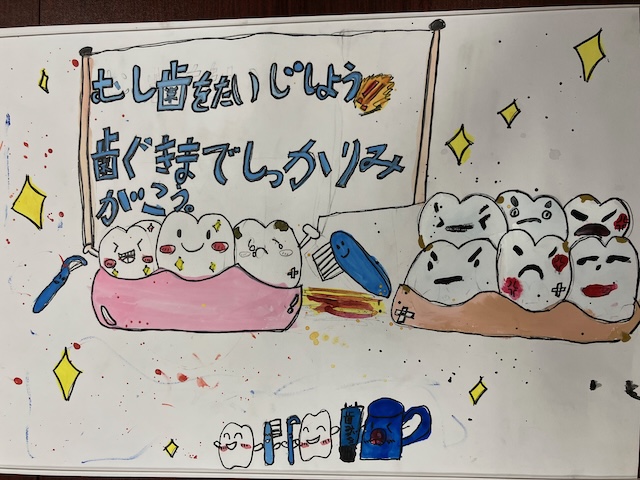 むし歯をたいじしよう!!
歯ぐきまでしっかりみ
がこう。